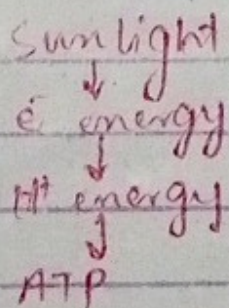 Sunlight
↓
é energy
↓
H⁺ energy
↓
ATP